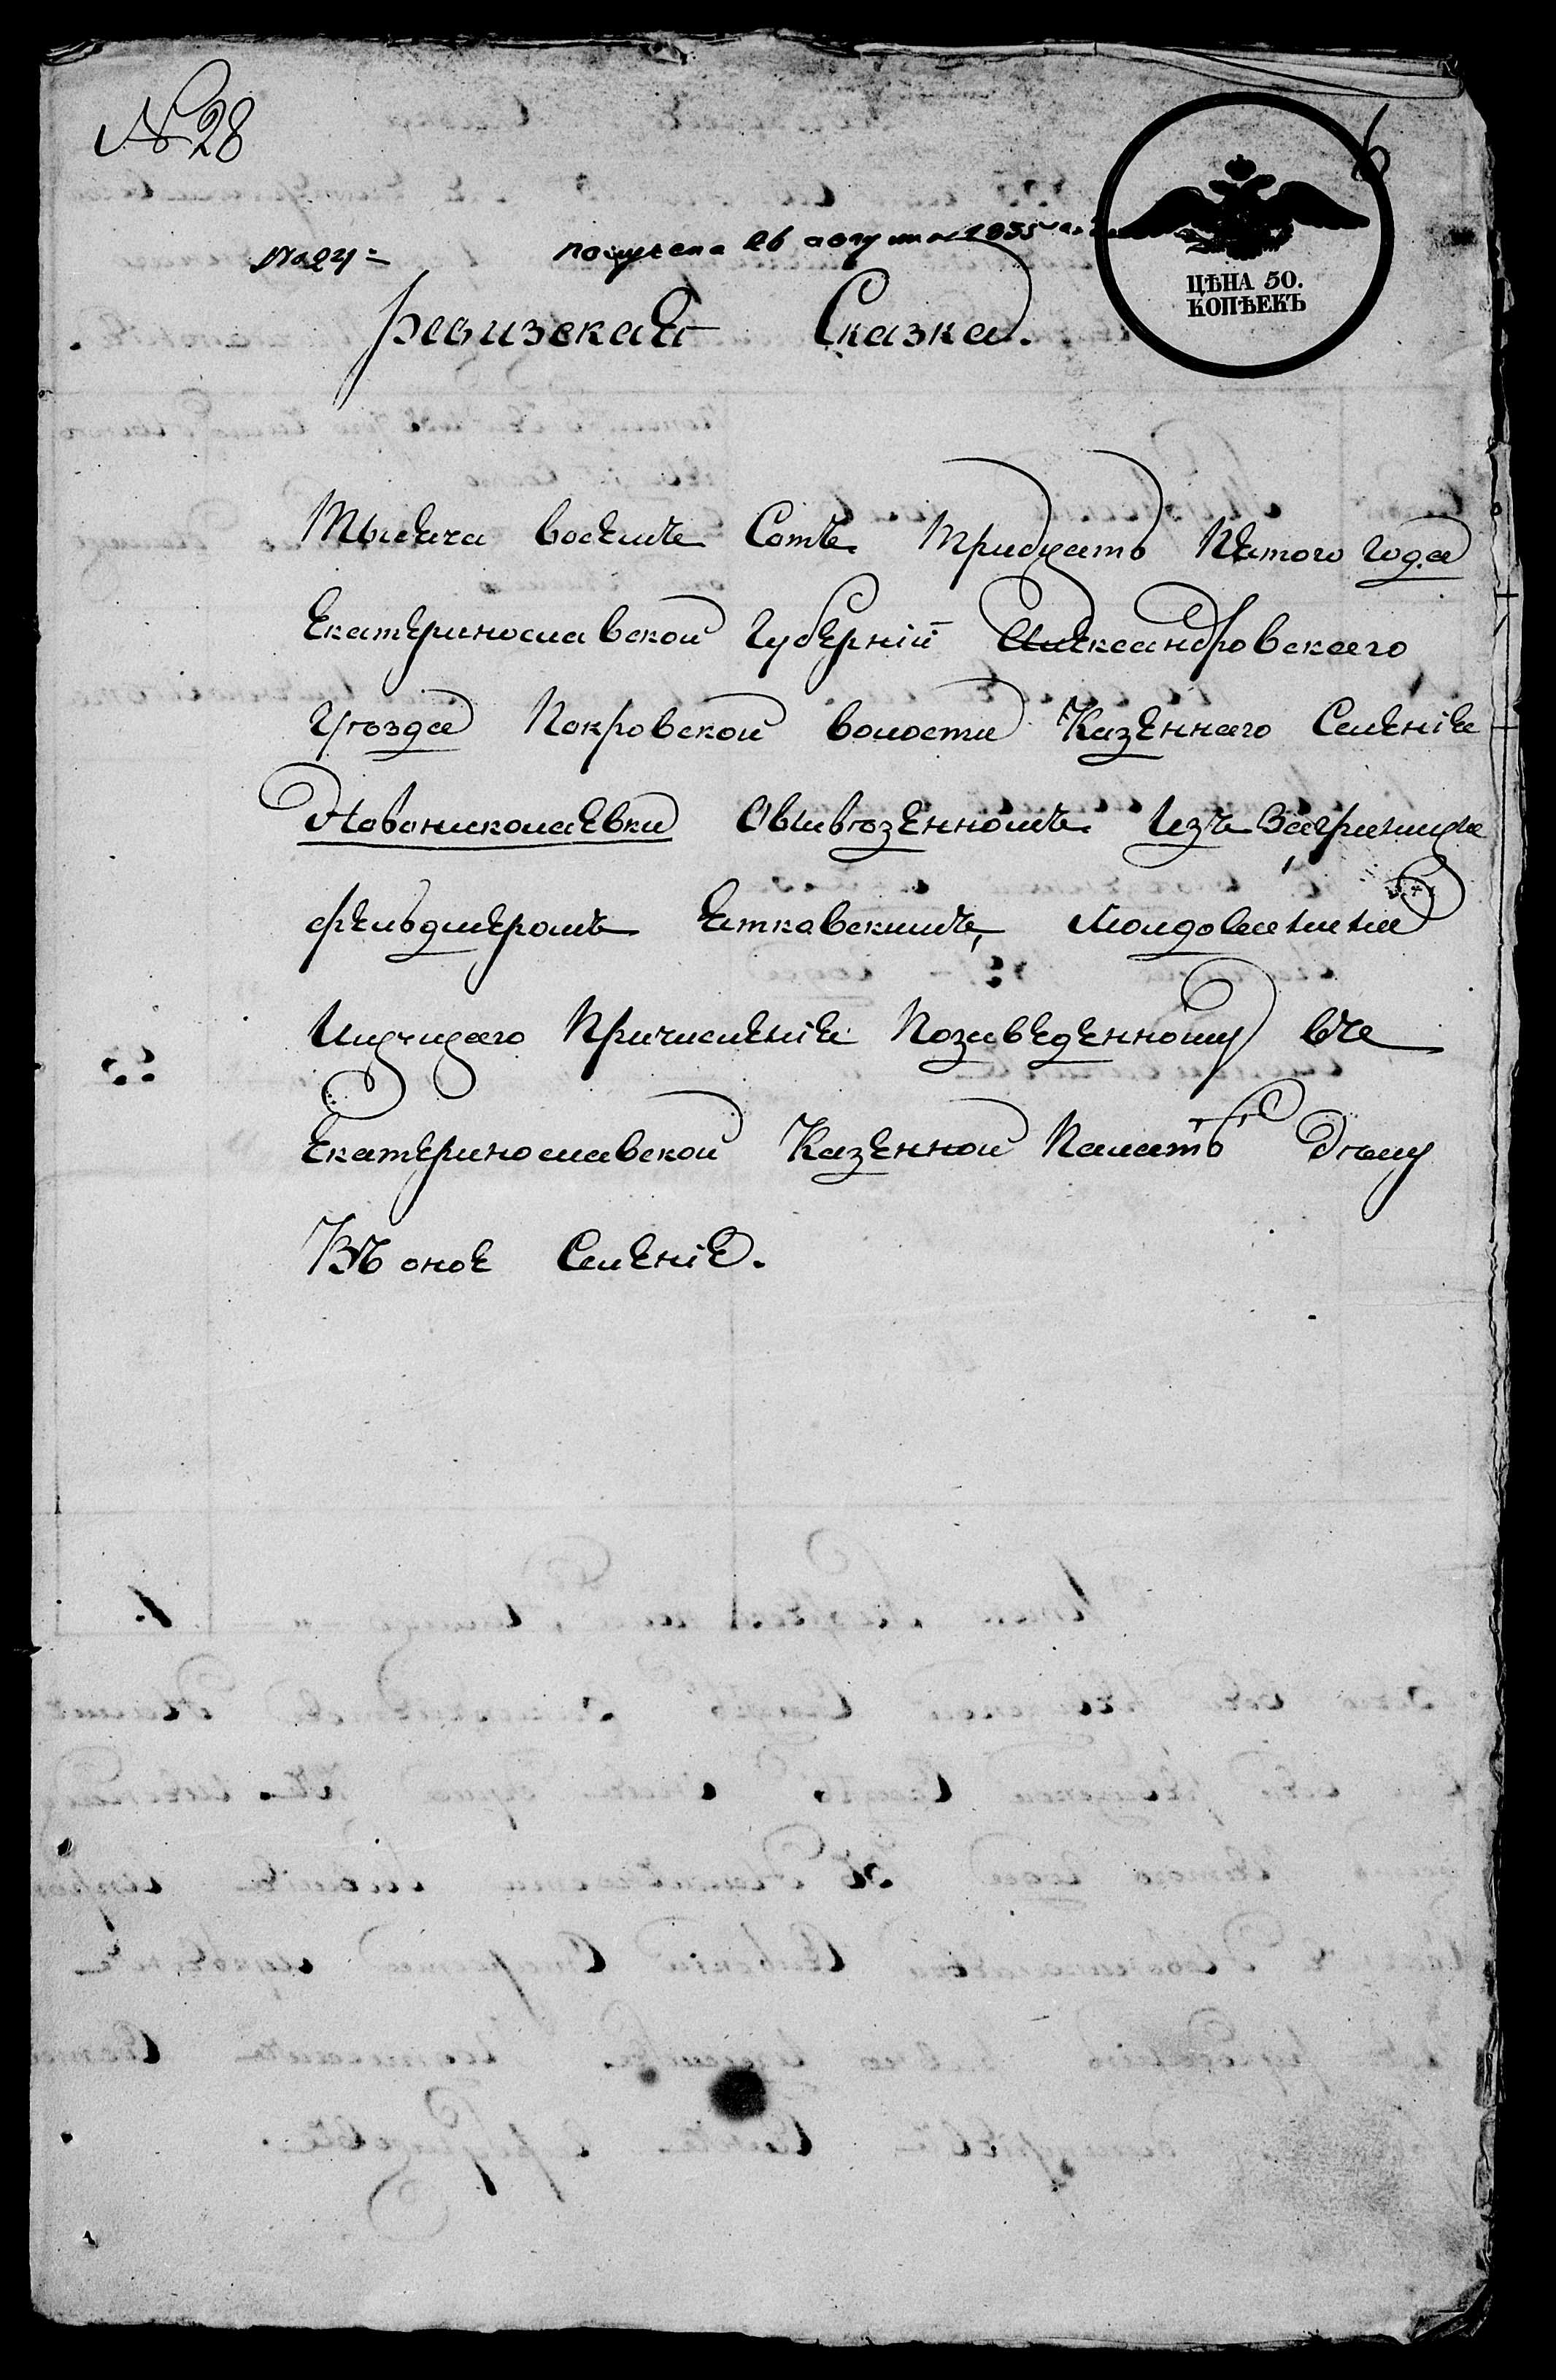 № 28
6
№ 24 =
получена 26 августа 1835 года
ЦѢНА 50.
КОПѢЕКЪ
Ревизская Сказка.
Тысяча восемъ Сотъ Тридцать Пятого Года
Екатеринославской Губерніи Александровскаго
Уѣзда Покровской волости Казеннаго Селенія
Новониколаевки Овывѣзенномъ Изъ Заграницы
фельдшеромъ Ятковскимъ, Молдованина
Ищущаго Причисленія Позаведенному въ
Екатеринославской Казенной Палатѣ дѣлу
Въ оное Селеніе.